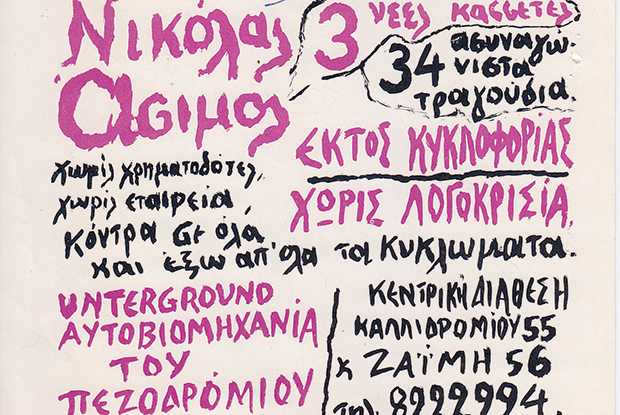 Νικόλας
Άσιμος
3 νέες κασσέτες
34 ασυναγώ-
νιστα
τραγούδια.
ΕΚΤΟΣ ΚΥΚΛΟΦΟΡΙΑΣ
ΧΩΡΙΣ ΛΟΓΟΚΡΙΣΙΑ,
χωρίς χρηματοδότες,
χωρίς εταιρεία,
κόντρα σε όλα
και έξω απ' όλα τα κυκλώματα.
UNTERGROUND
ΑΥΤΟΒΙΟΜΗΧΑΝΙΑ
ΤΟΥ
ΠΕΖΟΔΡΟΜΙΟΥ
ΚΕΝΤΡΙΚΗ ΔΙΑΘΕΣΗ
ΚΑΛΛΙΔΡΟΜΙΟΥ 55
κ ΖΑΪΜΗ 56
τηλ. 8222994